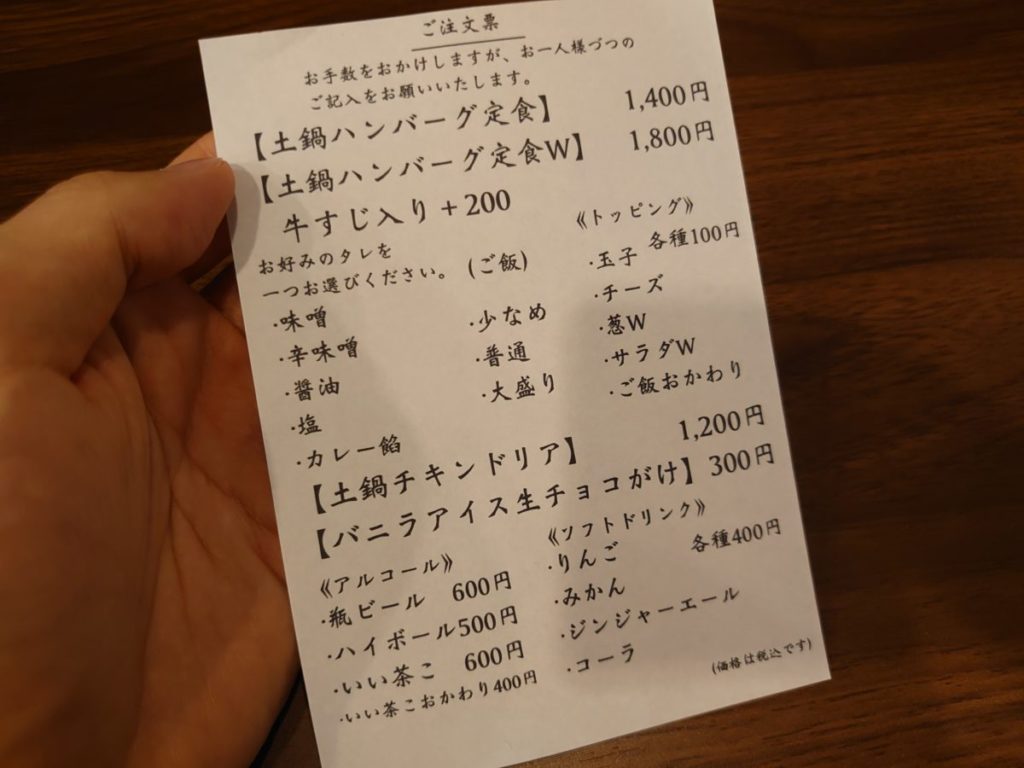 ご注文票
お手数をおかけしますが、お一人様づつの
ご記入をお願いいたします。
【土鍋ハンバーグ定食】 1,400円
【土鍋ハンバーグ定食W】 1,800円
牛すじ入り+200
お好みのタレを
一つお選びください。
・味噌
・辛味噌
・醤油
・塩
・カレー餡
(ご飯)
・少なめ
・普通
・大盛り
《トッピング》
各種100円
・玉子
・チーズ
・葱W
・サラダW
・ご飯おかわり
【土鍋チキンドリア】 1,200円
【バニラアイス生チョコがけ】 300円
《アルコール》
・瓶ビール 600円
・ハイボール500円
・いい茶こ 600円
・いい茶こおかわり400円
《ソフトドリンク》
各種400円
・りんご
・みかん
・ジンジャーエール
・コーラ
(価格は税込です)